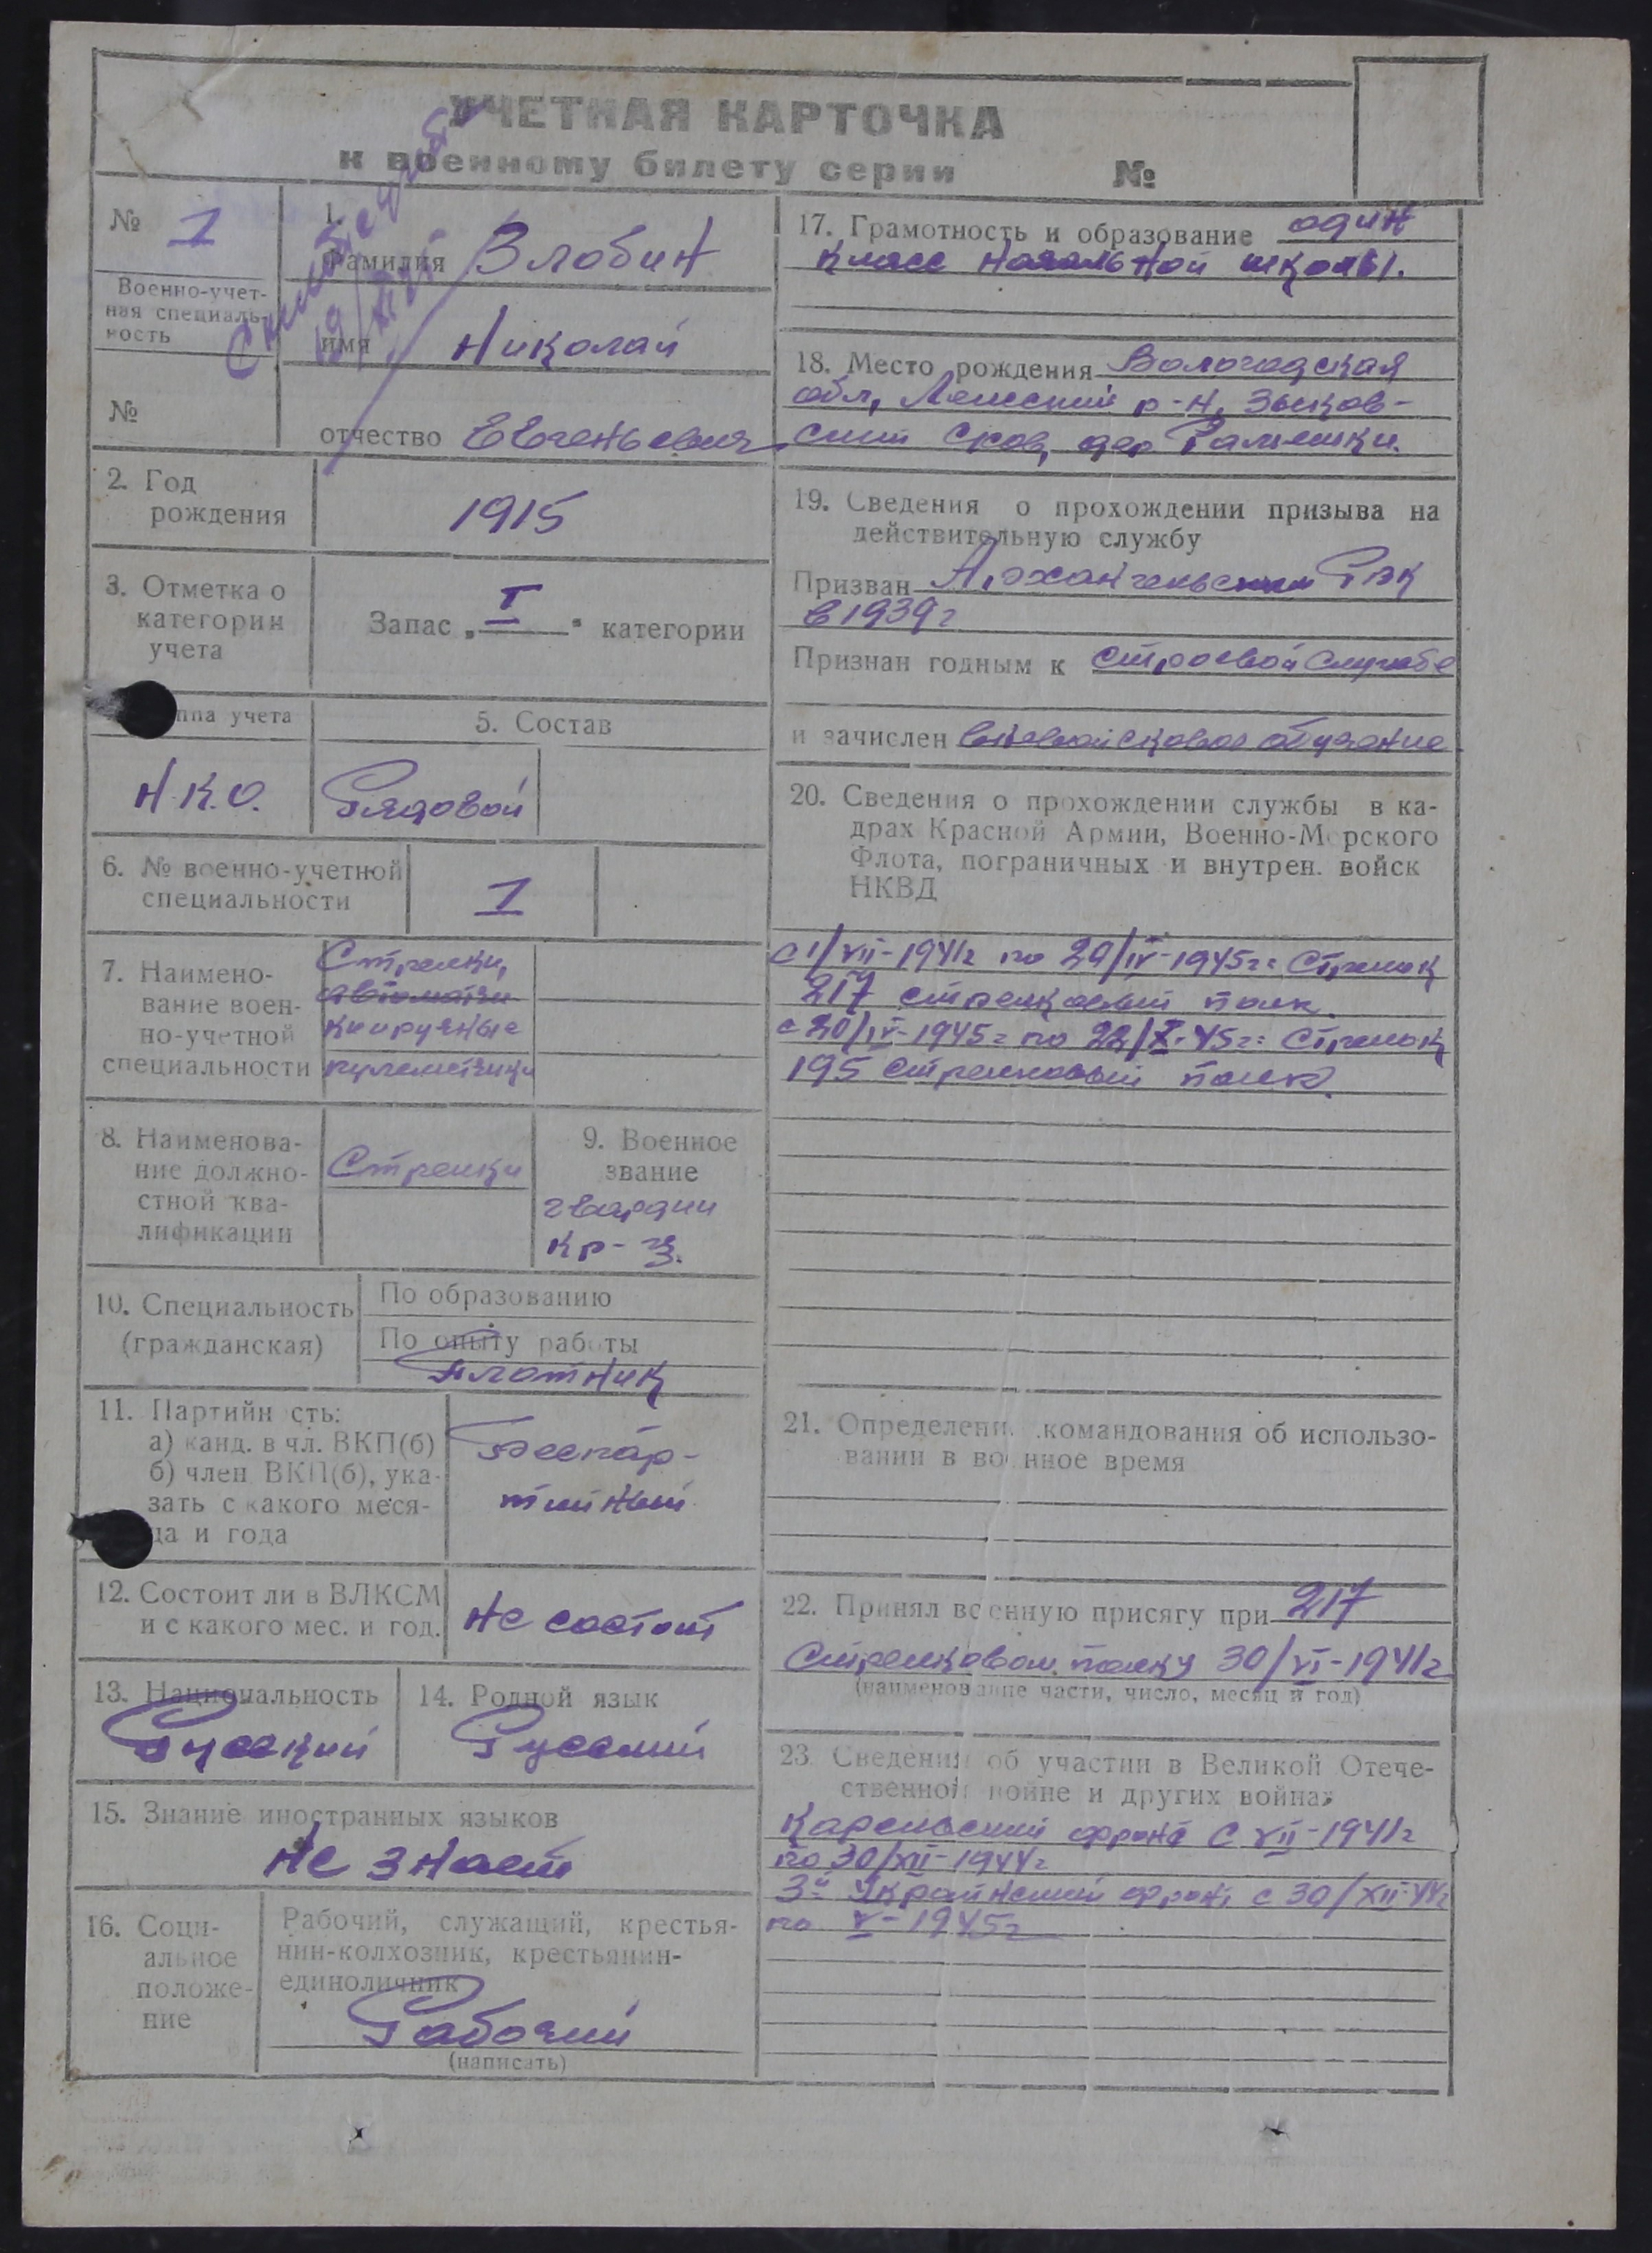 УЧЕТНАЯ КАРТОЧКА
к военному билету серии №
№ 1
Военно-учет-
ная специаль-
ность
№
1.
Фамилия Злобин
имя Николай
отчество Евгеньевич
2. Год
рождения
1915
3. Отметка о
категории
учета
Запас „I“ категории
ппа учета
Н.К.О.
5. Состав
Рядовой
6. № военно-учетной
специальности
1
7. Наимено-
вание воен-
но-учетной
специальности
Стрелки,
автоматчи
ки ручные
пулеметчики
8. Наименова-
ние должно-
стной ква-
лификации
Стрелки
9. Военное
звание
гвардии
кр-ц.
10. Специальность
(гражданская)
По образованию
По опыту работы
Плотник
11. Партийн сть:
а) канд. в чл. ВКП(б)
б) член ВКП(б), ука-
зать с какого меся-
ца и года
Беспар-
тийный
12. Состоит ли в ВЛКСМ
и с какого мес. и год.
Не состоит
13. Национальность
Русский
14. Родной язык
Русский
15. Знание иностранных языков
Не знает
16. Соци-
альное
положе-
ние
Рабочий, служащий, крестья-
нин-колхозник, крестьянин-
единоличник
Рабочий
(написать)
17. Грамотность и образование один
класс начальной школы.
18. Место рождения Вологодская
обл, Ленский р-н, Зыков-
ский с/сов, дер.
19. Сведения о прохождении призыва на
действительную службу
Призван Архангельским РВК
в 1939г
Признан годным к строевой службе
и зачислен вневойсковое обучение
20. Сведения о прохождении службы в ка-
драх Красной Армии, Военно-Морского
Флота, пограничных и внутрен. войск
НКВД
с 1/VII-1941г по 29/IV-1945г: Стрелок
217 стрелковый полк.
с 20/IV-1945г по 22/X-45г: Стрелок
195 стрелковый полк.
21. Определени командования об использо-
вании в во нное время
22. Принял военную присягу при 217
Стрелковом полку 30/VI-1941г
(наименование части, число, месяц и год)
23. Сведения об участии в Великой Отече-
ственной войне и других войнах
Карельский фронт с VII-1941г
по 30/XII-1944г
3й Украинский фронт с 30/XII-44г
по V-1945г